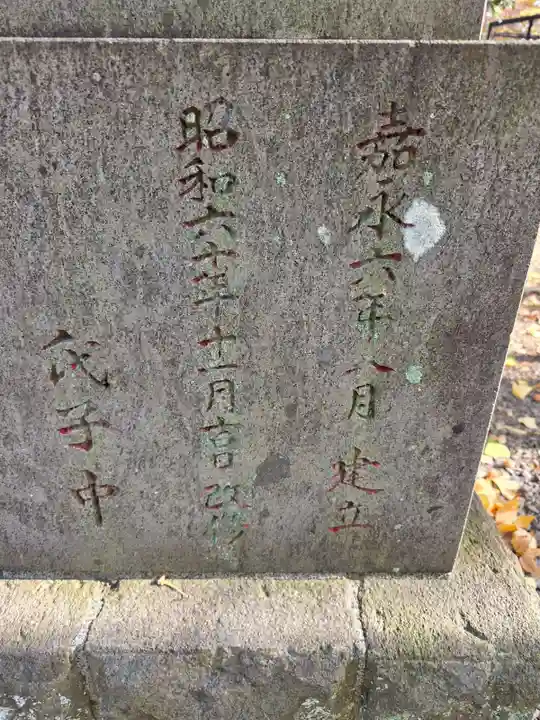 嘉永六年八月 建立
昭和六十年十一月吉日 改修
氏子中